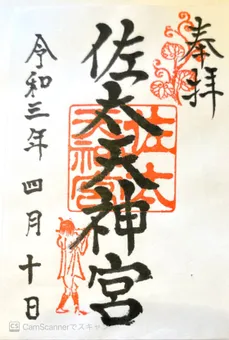 奉拝
佐太天神宮
佐太天神宮
令和三年 四月十日
CamScannerでスキャン